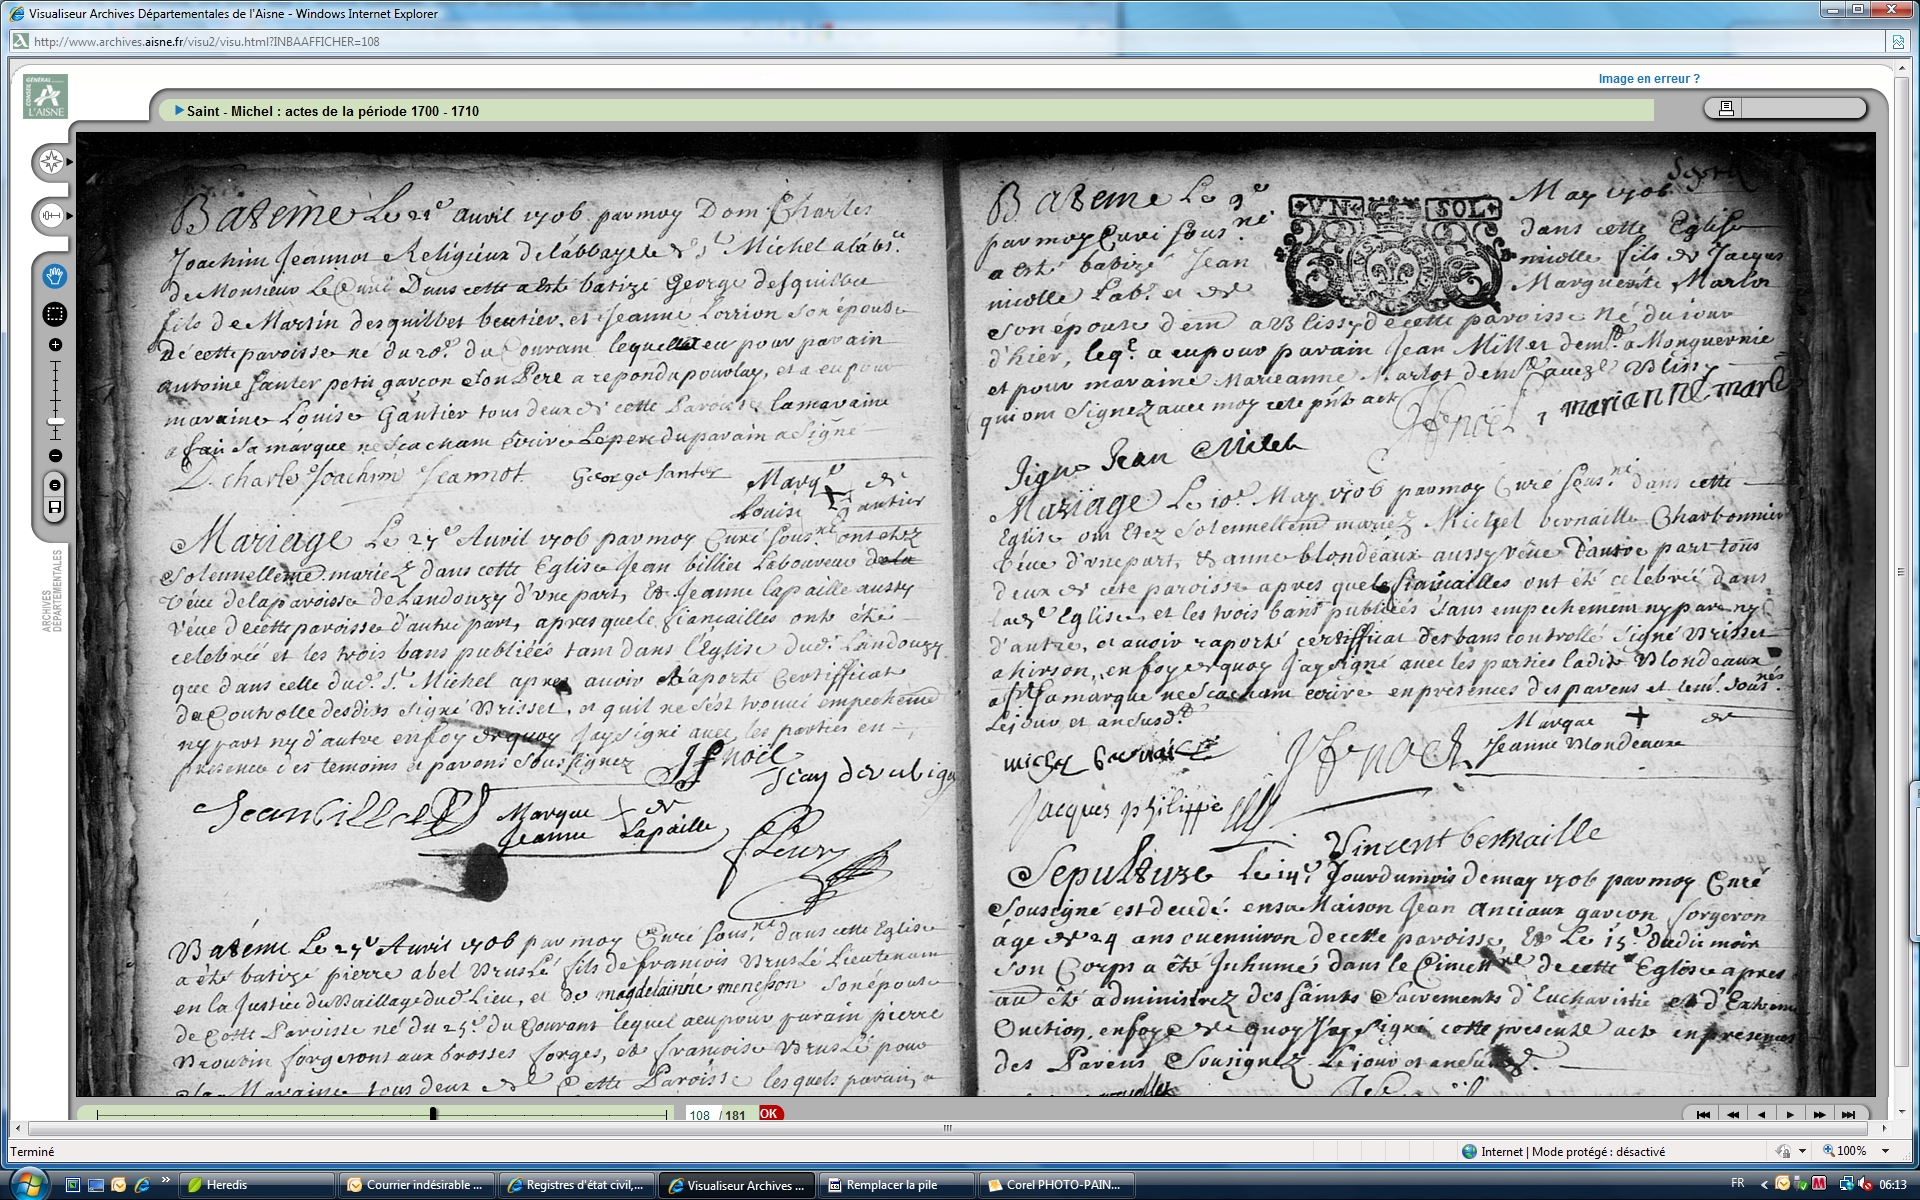 Visualiseur Archives Départementales de l'Aisne - Windows Internet Explorer
http://www.archives.aisne.fr/visu2/visu.html?INBAAFFICHER=108
Image en erreur ?
GÉNÉRAL
CONSEIL
L'AISNE
Saint - Michel : actes de la période 1700 - 1710
ARCHIVES
DÉPARTEMENTALES
Batême Le 21e Auril 1706 par moy Dom Charles
Joachim Jeannot Religieux de l'abbaye de St Michel a l'abs.ce
de Monsieur Le Curé Dans cette a esté batizé George desquilbet
fils de Martin desquilbet et Jeanne Lorrion son épouse
de cette paroisse né du 20e du Courant lequel a eu pour parain
antoine santer petit garçon son Pere a repondu pour luy, et a eu pour
maraine Louise Gautier tous deux de cette Paroisse la maraine
a fait sa marque ne scachant écrire Le pere du parain a signé
D. charle Joachim Jeannot George santer Marq + de
Louise Gautier
Mariage Le 27e Auril 1706 par moy Curé sous.né ont etez
solennellemt mariez dans cette Eglise Jean billiet Laboureur de la
veue de la paroisse de Landouzy d'vne part, Et Jeanne lapaille aussy
veue de cette paroisse d'autre part, apres que le fiancailles ont été
celebrée et les trois bans publiées tant dans l'Eglise dud. Landouzy
que dans celle dud. St Michel apres auoir raporté Certifficat
du Controlle desdits signé Brisset, et qu'il ne s'est trouué empechemt
ny part ny d'autre en foy de quoy J'ay signé auec les parties en
presence des temoins et parens soussignez JfNoël
Jean billiet Marque de
Jeanne Lapaille
fleury
Batême Le 27e Auril 1706 par moy Curé sous.né dans cette Eglise
a été batizé pierre abel Bruslé fils de francois Bruslé Lieutenant
en la Justice du Baillage dud. Lieu, et de magdelainne menesson son épouse
de Cette Paroisse né du 25e du Courant lequel a eu pour parain pierre
forgeront aux brosses forges, et francoise Bruslé pour
sa Maraine tous deux de Cette Paroisse lesquels parain, a
Batême Le 9e May 1706
par moy Curé sous.né dans cette Eglise
a esté batizé Jean nicolle fils de Jacques
nicolle Lab. et de Marguerite Marlot
VN SOL
son épouse dem. a Blissy de cette paroisse Né du jour
d'hier, leq. a eu pour parain Jean Millet demt a Monquernie
et pour maraine Marieanne Marlot demt
qui ont signez auec moy cete pnt act JfNoël, marianne marlo
signe Jean Milet
Mariage Le 10e May 1706 par moy Curé sous.né dans cette
Eglise ont Etez solennellemt mariez Michel bernaille Charbonnier
veue d'vne part, & anne blondeaux aussy veue d'autre part tous
deux de cete paroisse apres que les fiancailles ont été celebrée dans
lad. Eglise, et les trois bans publiées sans empechement ny part ny
d'autre, et auoir raporté certifficat des bans controllé signé Brisset
a hirson, en foy de quoy J'ay signé auec les parties ladite Blondeaux
a fait sa marque ne scachant ecrire en presences des parens et tem. sous.nés
Le jour et an susd.
michel bernaille JfNoël Marque + de
Jeanne Blondeaux
Jacques philippe
Vincent bernaille
Sepulture Le 14e Jour du mois de may 1706 par moy Curé
Sousigné est decedé en sa Maison Jean Anciaux garçon forgeron
âge de 24 ans ou enuiron de cette paroisse, Et Le 15e dudit mois
son Corps a été Inhumé dans le Cimetre de cette Eglise apres
auoir été administrez des saints Sacrements d'Eucharistie et d'Extreme
Onction, en foy de quoy J'ay signé cette presente act en presences
des Parens Sousignez Le jour et an susd.
108 / 181 OK
Terminé
Internet | Mode protégé : désactivé
100%
Heredis
Courrier indésirable ...
Registres d'état civil,...
Visualiseur Archives ...
Remplacer la pile
Corel PHOTO-PAIN...
FR
06:13